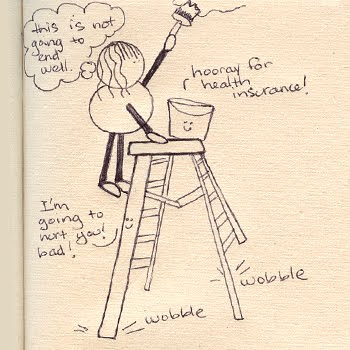 this is not
going to
end
well.
hooray for
health
insurance!
I'm
going to
hurt you!
bad!
wobble
wobble